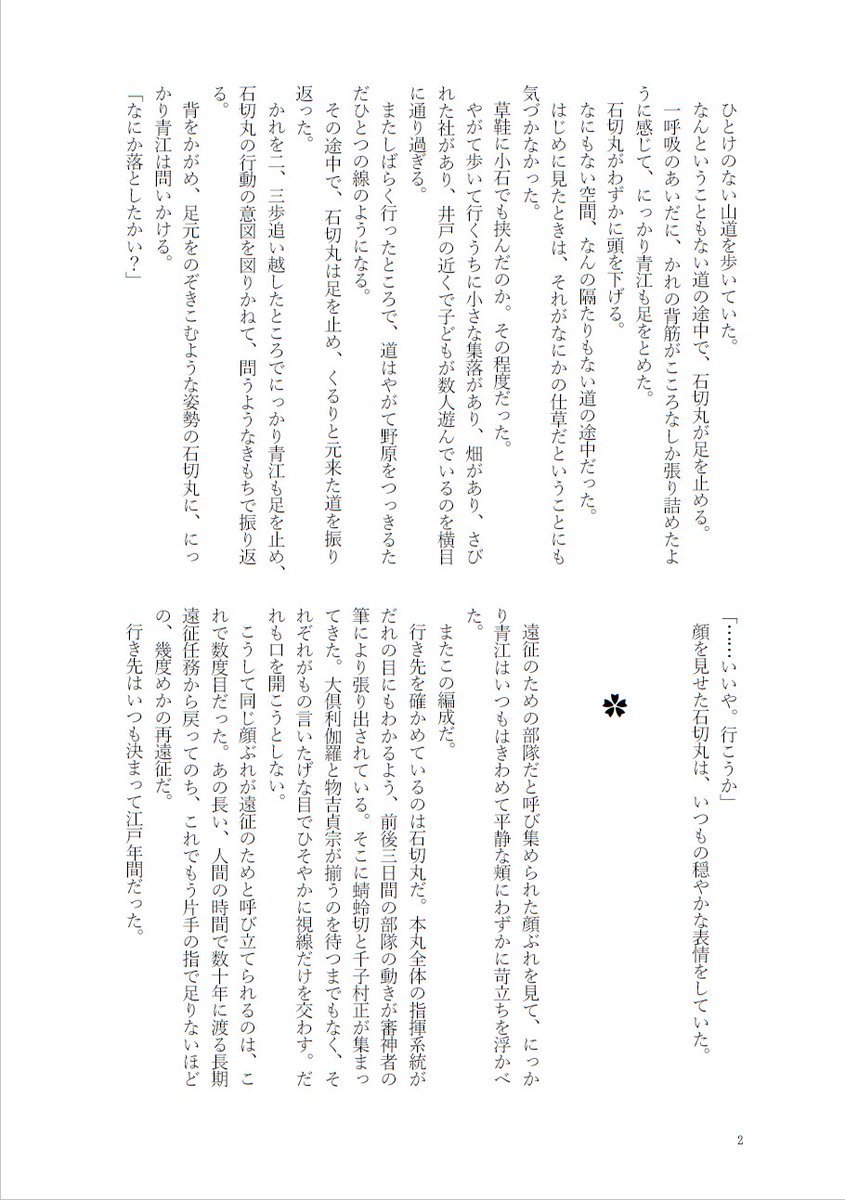 ひとけのない山道を歩いていた。
なんということもない道の途中で、石切丸が足を止める。
一呼吸のあいだに、かれの背筋がこころなしか張り詰めたよ
うに感じて、にっかり青江も足をとめた。
石切丸がわずかに頭を下げる。
なにもない空間、なんの隔たりもない道の途中だった。
はじめに見たときは、それがなにかの仕草だということにも
気づかなかった。
草鞋に小石でも挟んだのか。その程度だった。
やがて歩いて行くうちに小さな集落があり、畑があり、さび
れた社があり、井戸の近くで子どもが数人遊んでいるのを横目
に通り過ぎる。
またしばらく行ったところで、道はやがて野原をつっきるた
だひとつの線のようになる。
その途中で、石切丸は足を止め、くるりと元来た道を振り
返った。
かれを二、三歩追い越したところでにっかり青江も足を止め、
石切丸の行動の意図を図りかねて、問うようなきもちで振り返
る。
背をかがめ、足元をのぞきこむような姿勢の石切丸に、にっ
かり青江は問いかける。
「なにか落としたかい？」
「……いいや。行こうか」
顔を見せた石切丸は、いつもの穏やかな表情をしていた。
遠征のための部隊だと呼び集められた顔ぶれを見て、にっか
り青江はいつもはきわめて平静な頬にわずかに苛立ちを浮かべ
た。
またこの編成だ。
行き先を確かめているのは石切丸だ。本丸全体の指揮系統が
だれの目にもわかるよう、前後三日間の部隊の動きが審神者の
筆により張り出されている。そこに蜻蛉切と千子村正が集まっ
てきた。大倶利伽羅と物吉貞宗が揃うのを待つまでもなく、そ
れぞれがもの言いたげな目でひそやかに視線だけを交わす。だ
れも口を開こうとしない。
こうして同じ顔ぶれが遠征のためと呼び立てられるのは、こ
れで数度目だった。あの長い、人間の時間で数十年に渡る長期
遠征任務から戻ってのち、これでもう片手の指で足りないほど
の、幾度めかの再遠征だ。
行き先はいつも決まって江戸年間だった。
2